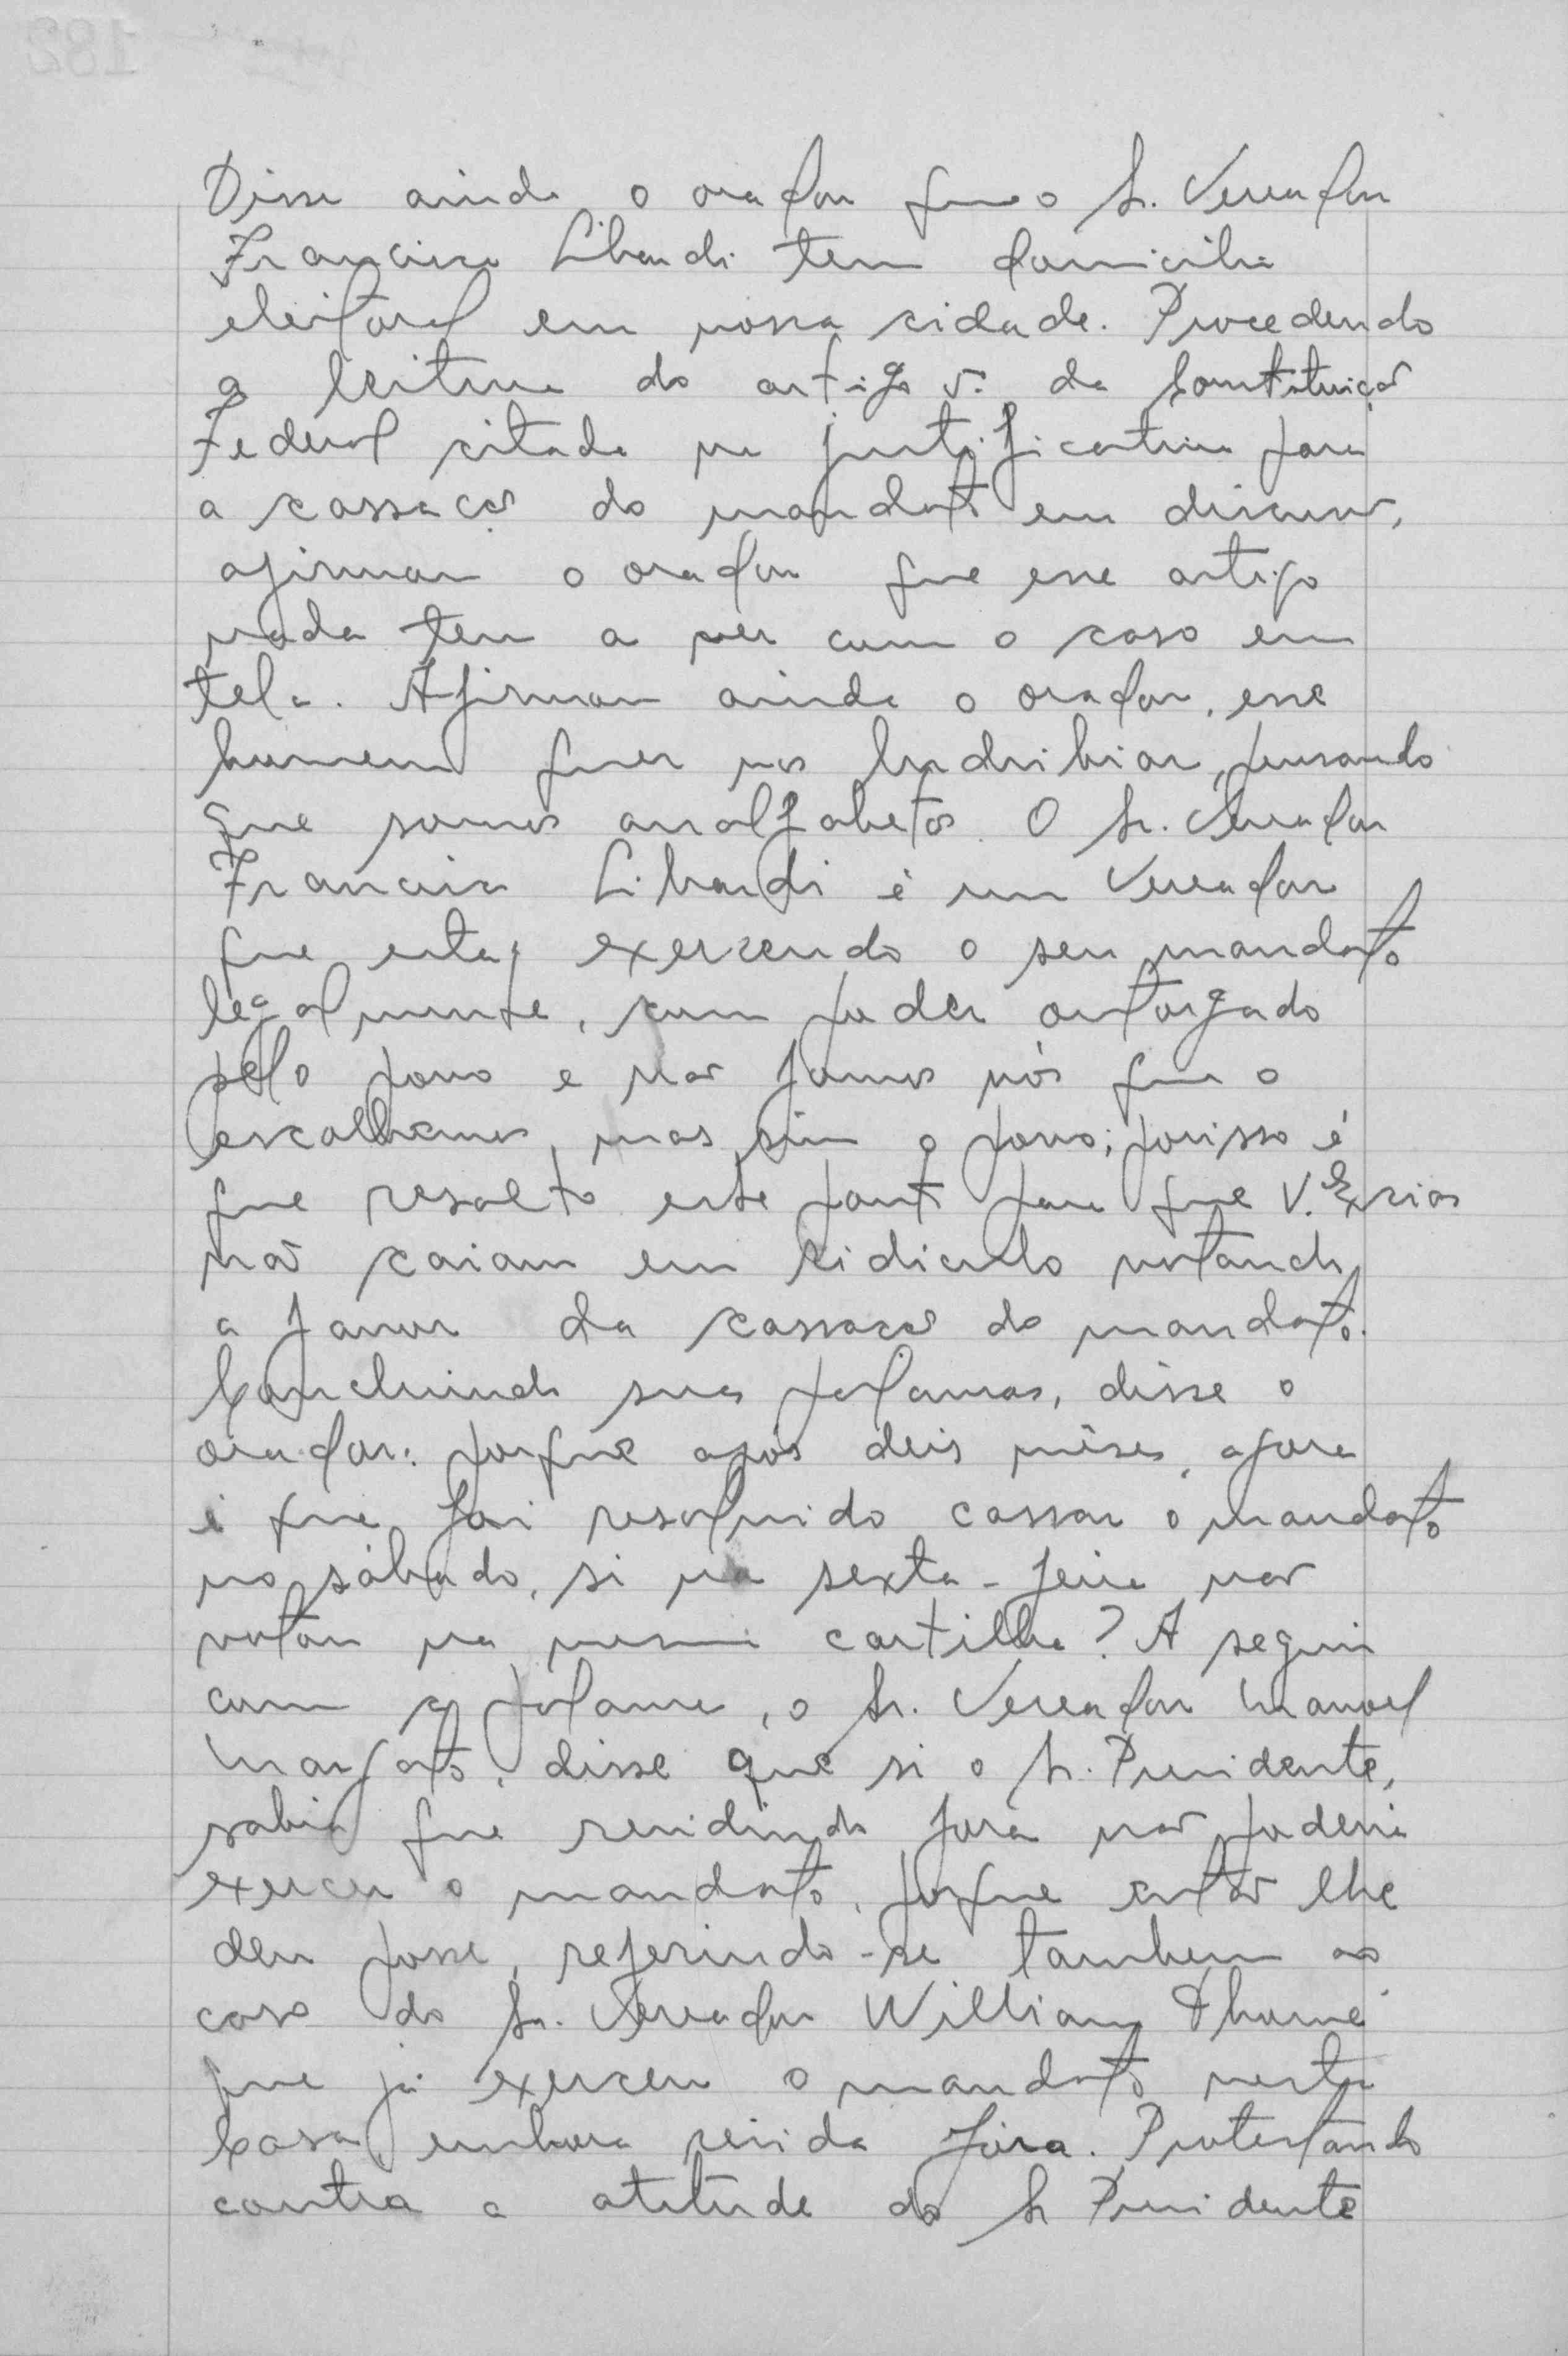 Disse ainda o orador que o Sr. Vereador
Francisco Libardi tem domicilio
eleitoral em nossa cidade. Procedendo
a leitura do artigo 5º da Constituição
Federal citada na justificativa para
a cassação do mandato em discussão,
afirmou o orador que esse artigo
nada tem a ver com o caso em
tela. Afirmou ainda o orador, esse
homem quer nos ludribiar, pensando
que somos analfabetos. O Sr. Vereador
Francisco Libardi é um Vereador
que está exercendo o seu mandato
legalmente, com poder outorgado
pelo povo e não fomos nós que o
escolhemos, mas sim o povo; porisso é
que resalto este ponto para que V. Excias
não caiam em ridiculo votando
a favor da cassação do mandato.
Concluindo suas palavras, disse o
orador: porque após deis mêses, agora
é que foi resolvido cassar o mandato
no sábado, si na sexta-feira não
votou na mesma cartilha? A seguir
com a palavra, o Sr. Vereador Manoel
Marfato, disse que si o Sr. Presidente,
sabia que residindo fora não poderia
exercer o mandato, porque então lhe
deu posse, referindo-se tambem ao
caso do Sr. Vereador William Thomé
que já exerceu o mandato nesta
Casa, embora resida fóra. Protestando
contra a atitude do Sr Presidente